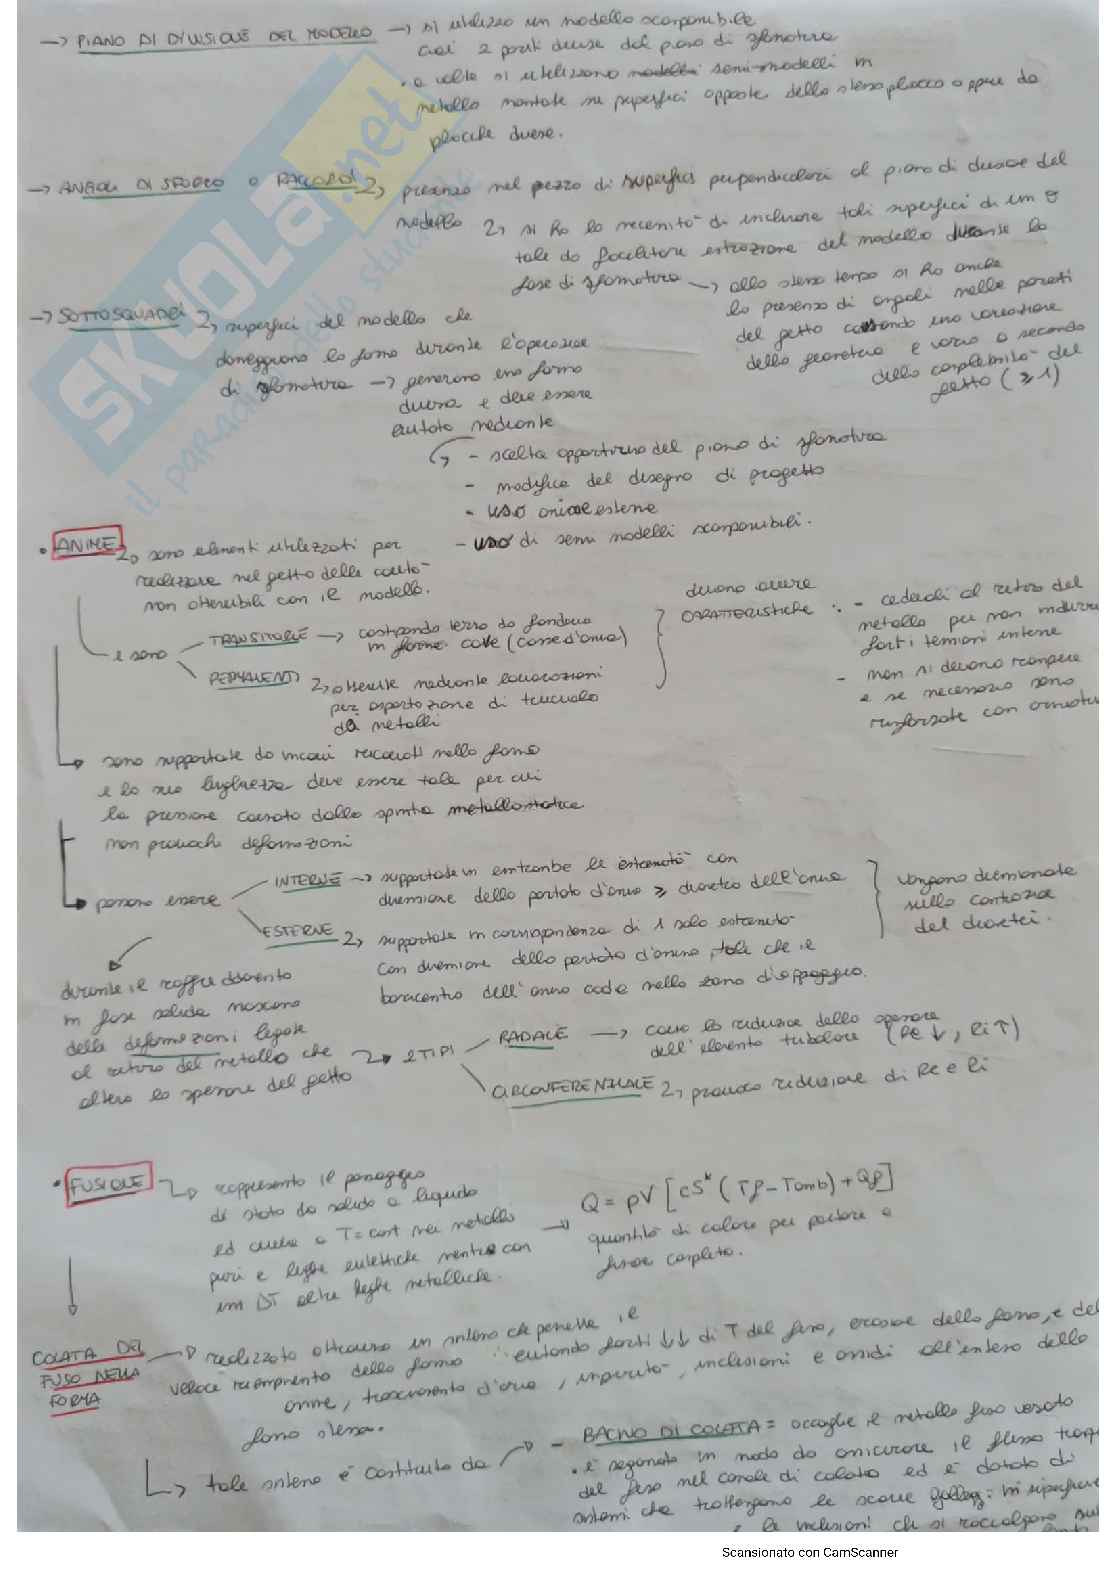 → PIANO DI DIVISIONE DEL MODELLO → si utilizza un modello scomponibile
con 2 parti divise dal piano di sformatura
• a volte si utilizzano modelli semi-modelli in
metallo montate su superfici opposte della stessa placca oppure da
placche diverse.
→ ANGOLI DI SFORMO o RACCORDI presenza nel pezzo di superfici perpendicolari al piano di divisione del
modello si ha la necessità di inclinare tali superfici di un θ
tale da facilitare estrazione del modello durante la
fase di sformatura → allo stesso tempo si ha anche
la presenza di angoli nelle pareti
del getto causando una variazione
della geometria e varia a seconda
della complessità del
getto (≥1)
→ SOTTOSQUADRI superfici del modello che
danneggiano la forma durante l'operazione
di sformatura → generano una forma
diversa e deve essere
evitato mediante
- scelta opportuna del piano di sformatura
- modifica del disegno di progetto
- uso anime esterne
- uso di semi modelli scomponibili.
• ANIME sono elementi utilizzati per
realizzare nel getto delle cavità
non ottenibili con il modello.
e sono
TRANSITORIE → costipando terra da fonderia
in forme cave (casse d'anima)
PERMANENTI ottenute mediante lavorazioni
per asportazione di truciolo
da metalli
devono avere
CARATTERISTICHE : - cedevoli al ritiro del
metallo per non indurre
forti tensioni interne
- non si devono rompere
e se necessario sono
rinforzate con armature
sono supportate da incavi ricavati nella forma
e la sua lunghezza deve essere tale per cui
la pressione causata dalla spinta metallostatica
non provochi deformazioni
possono essere
INTERNE → supportate in entrambe le estremità con
dimensione della portata d'anima ≥ diametro dell'anima
ESTERNE supportate in corrispondenza di 1 sola estremità
con dimensione della portata d'anima tale che il
baricentro dell'anima cada nella zona d'appoggio.
vengono dimensionate
sulla
del diametri.
durante il raffreddamento
in fase solida nascono
delle deformazioni legate
al ritiro del metallo che
altera lo spessore del getto
2 TIPI
RADIALE → causa la riduzione dello spessore
dell'elemento tubolare (Re ↓, Ri ↑)
CIRCONFERENZIALE provoca riduzione di Re e Ri
• FUSIONE rappresenta il passaggio
di stato da solido a liquido
ed avviene a T=cost nei metalli
puri e leghe eutettiche mentre con
un ΔT altre leghe metalliche.
→ Q = ρV [cs* (Tf - Tamb) + Qf]
quantità di calore per portare a
fusione completa.
COLATA DEL
FUSO NELLA
FORMA
realizzata attraverso un sistema che permette il
veloce riempimento della forma evitando forti ↓↓ di T del fuso, erosione della forma, e del
anime, trascinamento d'aria, impurità, inclusioni e ossidi all'interno della
forma stessa.
tale sistema è costituito da
- BACINO DI COLATA = accoglie il metallo fuso versato
• è sagomato in modo da assicurare il flusso
del fuso nel canale di colata ed è dotato di
sistemi che trattengono le scorie in superficie
le inclusioni che si raccolgono
Scansionato con CamScanner
SKUOLA.net
il paradiso dello studente